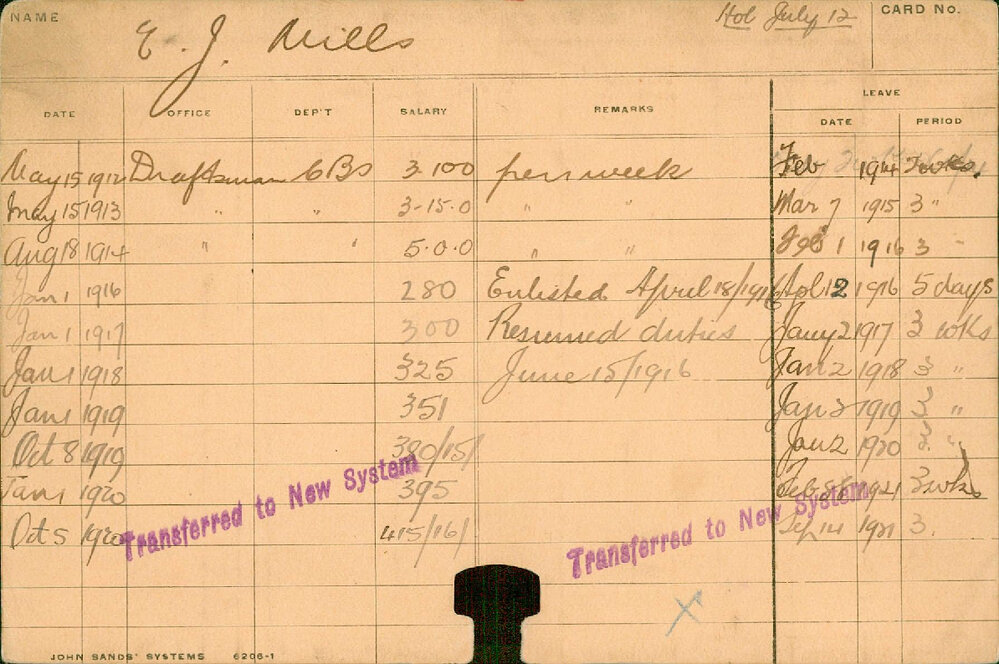 NAME E. J. Mills Hol July 12 CARD No.
LEAVE
DATE OFFICE DEP'T SALARY REMARKS DATE PERIOD
May 15 1912 Draftsman CBs 3 10 0 per week Feb 1914 3 wks.
May 15 1913 " " 3-15-0 " " Mar 7 1915 3 "
Aug 18 1914 " " 5-0-0 " " Feb 1 1916 3 "
Jan 1 1916 280 Enlisted April 18/1916 Apl 12 1916 5 days
Jan 1 1917 300 Resumed duties Jany 2 1917 3 wks
Jan 1 1918 325 June 15/1916 Jan 2 1918 3 "
Jan 1 1919 351 Jan 2 1919 3 "
Oct 8 1919 380/15/ Jan 2 1920 3 "
Jan 1 1920 395 Feb 1921 3 wks
Oct 5 1920 415/16/ Sep 14 1921 3.
Transferred to New System
Transferred to New System
X
JOHN SANDS' SYSTEMS 6206-1